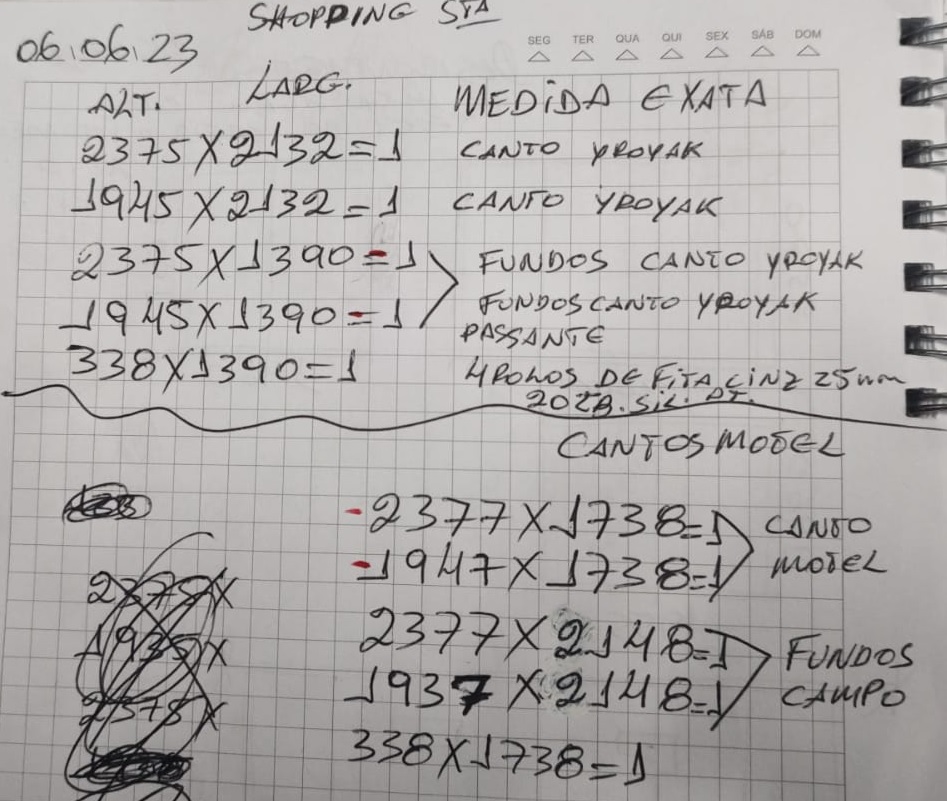 SHOPPING STA
06.06.23
SEG TER QUA QUI SEX SÁB DOM
ALT. LARG. MEDIDA EXATA
2375X2132=1 CANTO YROYAK
1945X2132=1 CANTO YROYAK
2375X1390=1 FUNDOS CANTO YROYAK
1945X1390=1 FUNDOS CANTO YROYAK
PASSANTE
338X1390=1 4 ROLOS DE FITA CINZ 25mm
SIL.
CANTOS MODEL
-2377X1738=1 CANTO
-1947X1738=1 MODEL
2375X
2377X2148=1 FUNDOS
1935X
1937X2148=1 CAMPO
2375X
338X1738=1